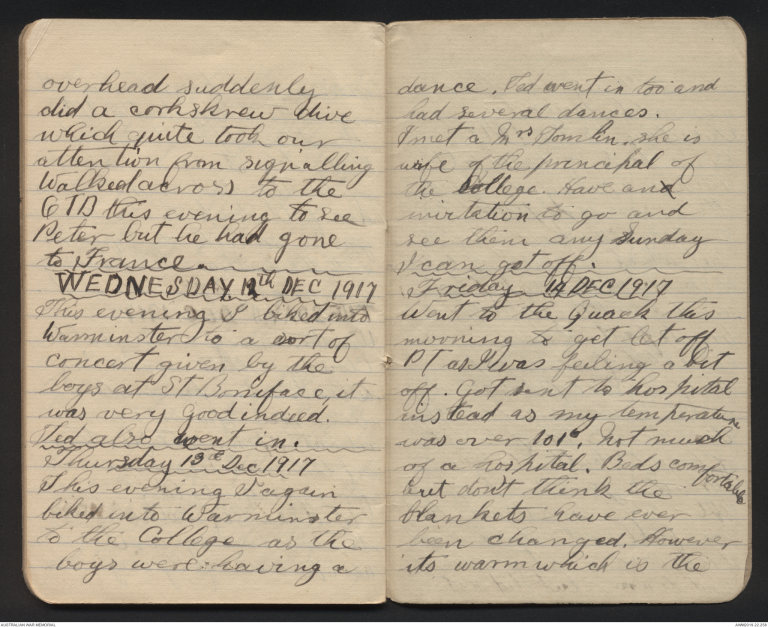 overhead suddenly
did a corkskrew dive
which quite took our
attention from signalling
Walked across to the
6TB this evening to see
Peter but he had gone
to France.
WEDNESDAY 12th DEC 1917
This evening I biked into
Warminster to a sort of
concert given by the
boys at St Boniface, it
was very good indeed.
Ted also went in.
Thursday 13th Dec 1917
This evening I again
biked into Warminster
to the College as the
boys were having a
dance. Ted went in too and
had several dances.
I met a Mrs Tomlin. she is
wife of the principal of
the College. Have an
invitation to go and
see them any Sunday
I can get off.
Friday 14 DEC 1917
Went to the Quack this
morning to get let off
PT as I was feeling a bit
off. Got sent to hospital
instead as my temperature
was over 101°. Not much
of a hospital. Beds comfortable
but don't think the
blankets have ever
been changed. However
its warm which is the
AUSTRALIAN WAR MEMORIAL
AWM2019.22.258